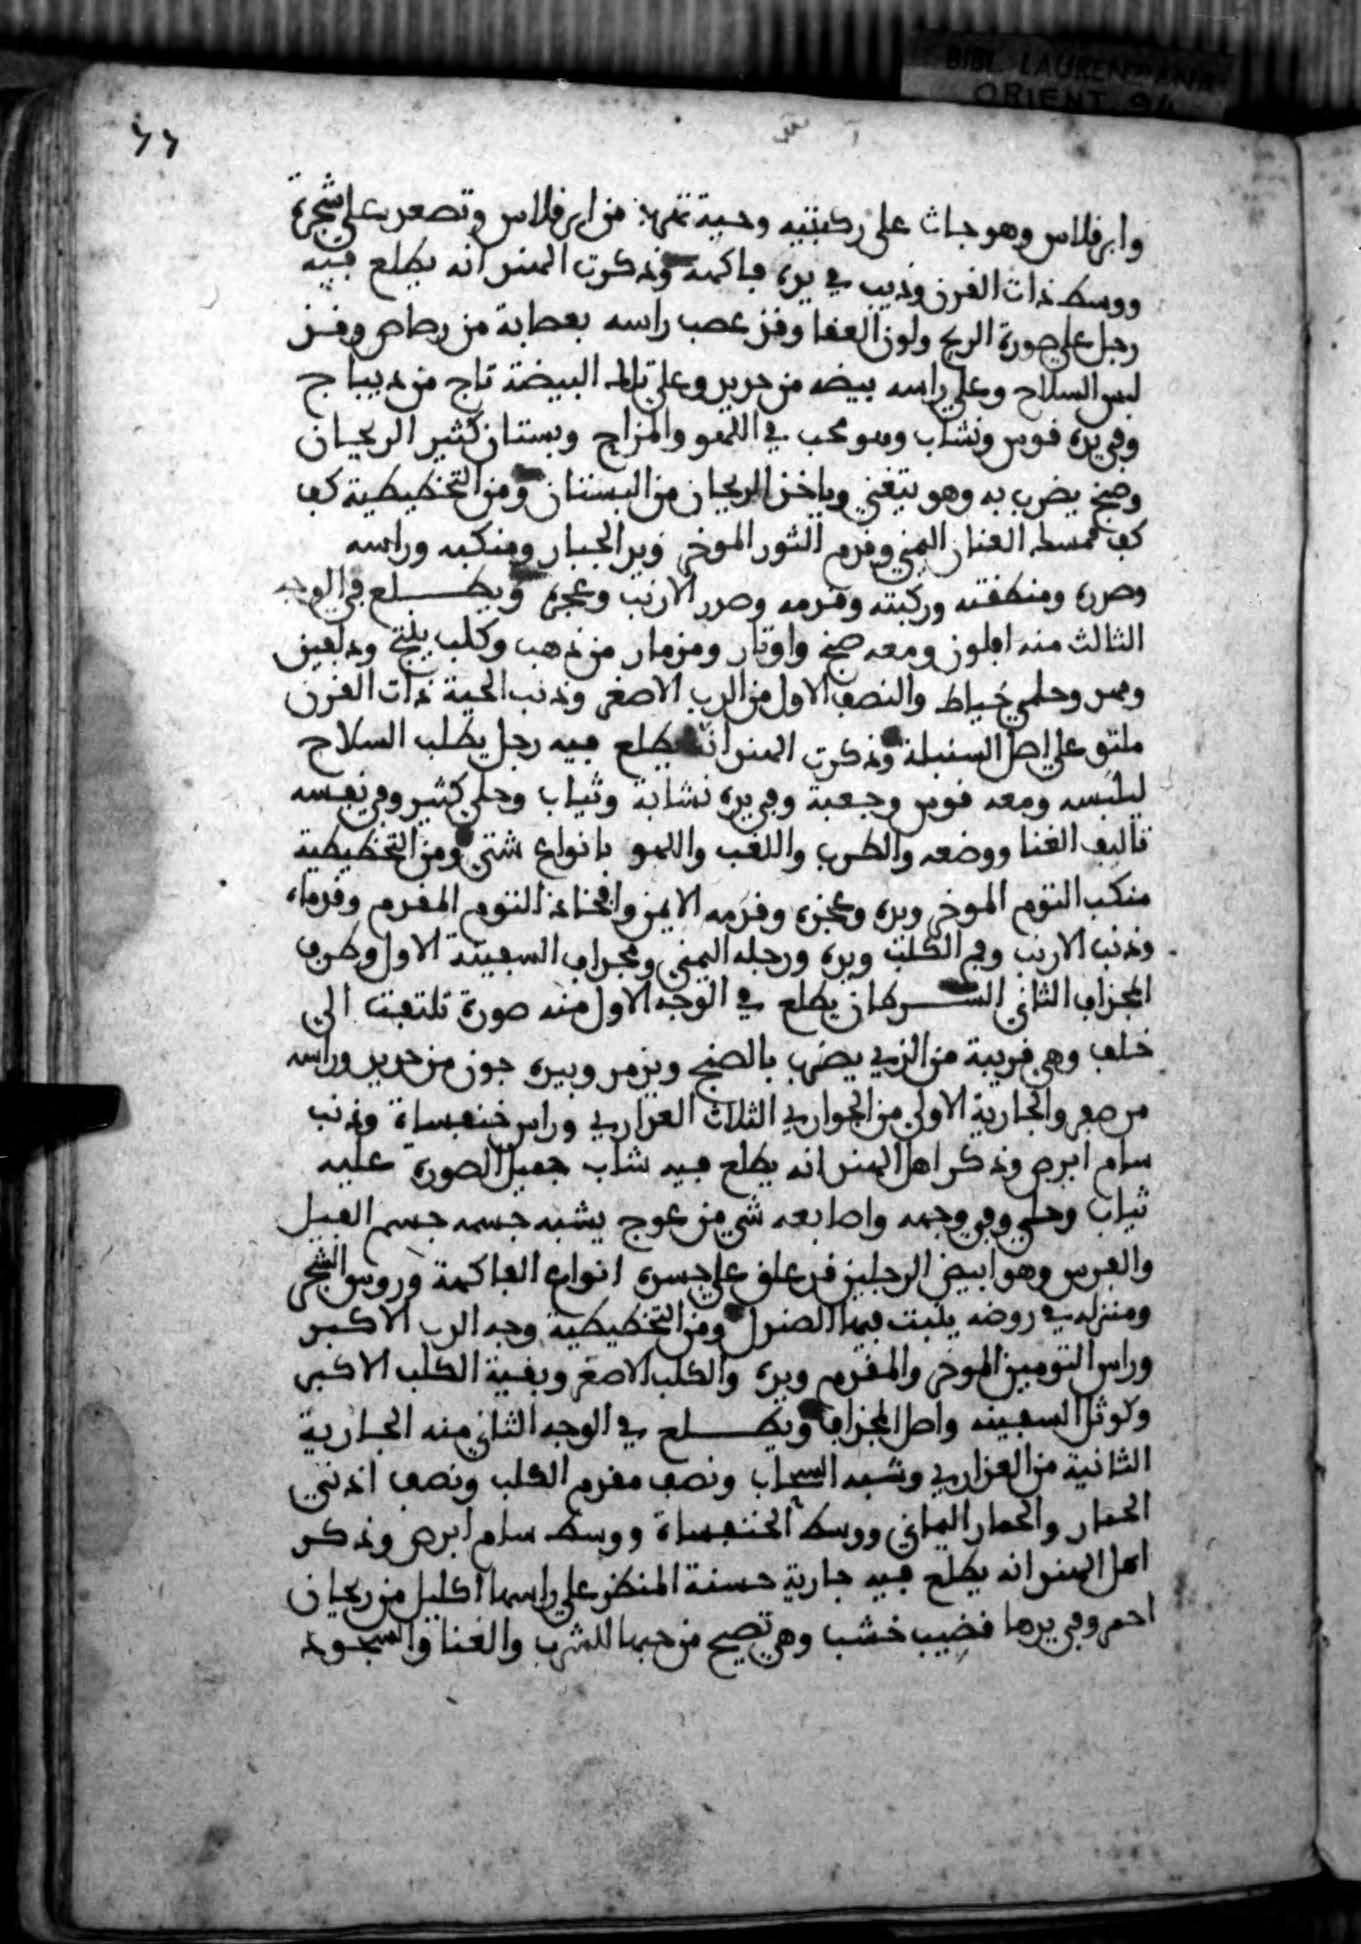 BIBL. LAURENZIANA
ORIENT. 94
٦٦
وابرفلاس وهو جاث على ركبتيه وحية تنهز من ابرفلاس وتصعد على شجرة
ووسط ذات القرن وذيب في يده فاكهة وذكرت الهند انه يطلع فيه
رجل على صورة الريح ولون العنقا وقد عصب راسه بعصابة من رصاص وقد
لبس السلاح وعلى راسه بيضه من حديد وعلى تلك البيضة تاج من ديباج
وفي يده قوس ونشاب وهو محب في اللهو والمزاح وبستان كثير الريحان
وصنج يضرب به وهو يتغني وياخذ الريحان من البستان ومن التخطيطية كف
كف ممسك العنان اليمني وقدم الثور الموخر ويد الجبار ومنكبه وراسه
وصدره ومنطقته وركبته وقدمه وصدر الارنب وعجزه ويطلع في الوجه
الثالث منه ابلون ومعه صنج واوتار ومزمار من ذهب وكلب ينبح ودلفين
وفهد وحلمي خياط والنصف الاول من الدب الاصغر وذنب الحية ذات القرن
ملتو على اصل السنبلة وذكرت الهند انه يطلع فيه رجل يطلب السلاح
ليلبسه ومعه قوس وجعبة وفي يده نشابة وثياب وحلي كثير وفي نفسه
تاليف الغنا ووضعه والطرب واللعب واللهو بانواع شتي ومن التخطيطية
منكب التوم الموخر ويده وعجزه وقدمه الايمن وافخاذ التوم المقدم وقدماه
وذنب الارنب وفم الكلب ويده ورجله اليمني ومجراف السفينة الاول وطرف
المجراف الثاني السرطان يطلع في الوجه الاول منه صورة تلتفت الي
خلف وهي قريبة من الزي يضرب بالصنج ويزمر وبيده جون من حديد وراسه
من صفر والجارية الاولى من الجواري الثلاث العذاري وراس خنفساة وذنب
سام ابرص وذكر اهل الهند انه يطلع فيه شاب جميل الصورة عليه
ثياب وحلي وفي وجهه واصابعه شي من عوج يشبه جسمه جسم الفيل
والفرس وهو ابيض الرجلين قد علق على جسده انواع الفاكهة وروس الشجر
ومنزله في روضه ينبت فيها الصندل ومن التخطيطية وجه الدب الاكبر
وراس التومين الموخر والمقدم ويده والكلب الاصغر وبقية الكلب الاكبر
وكوثل السفينه واصل المجراف ويطلع في الوجه الثاني منه الجارية
الثانية من العذاري وشبه السحاب ونصف مقدم الكلب ونصف اذني
الحمار والحمار اليماني ووسط الخنفساة ووسط سام ابرص وذكر
اهل الهند انه يطلع فيه جارية حسنة المنظر على راسها اكليل من ريحان
احمر وفي يدها قضيب خشب وهي تصيح من حبها للشرب والغنا والسجود